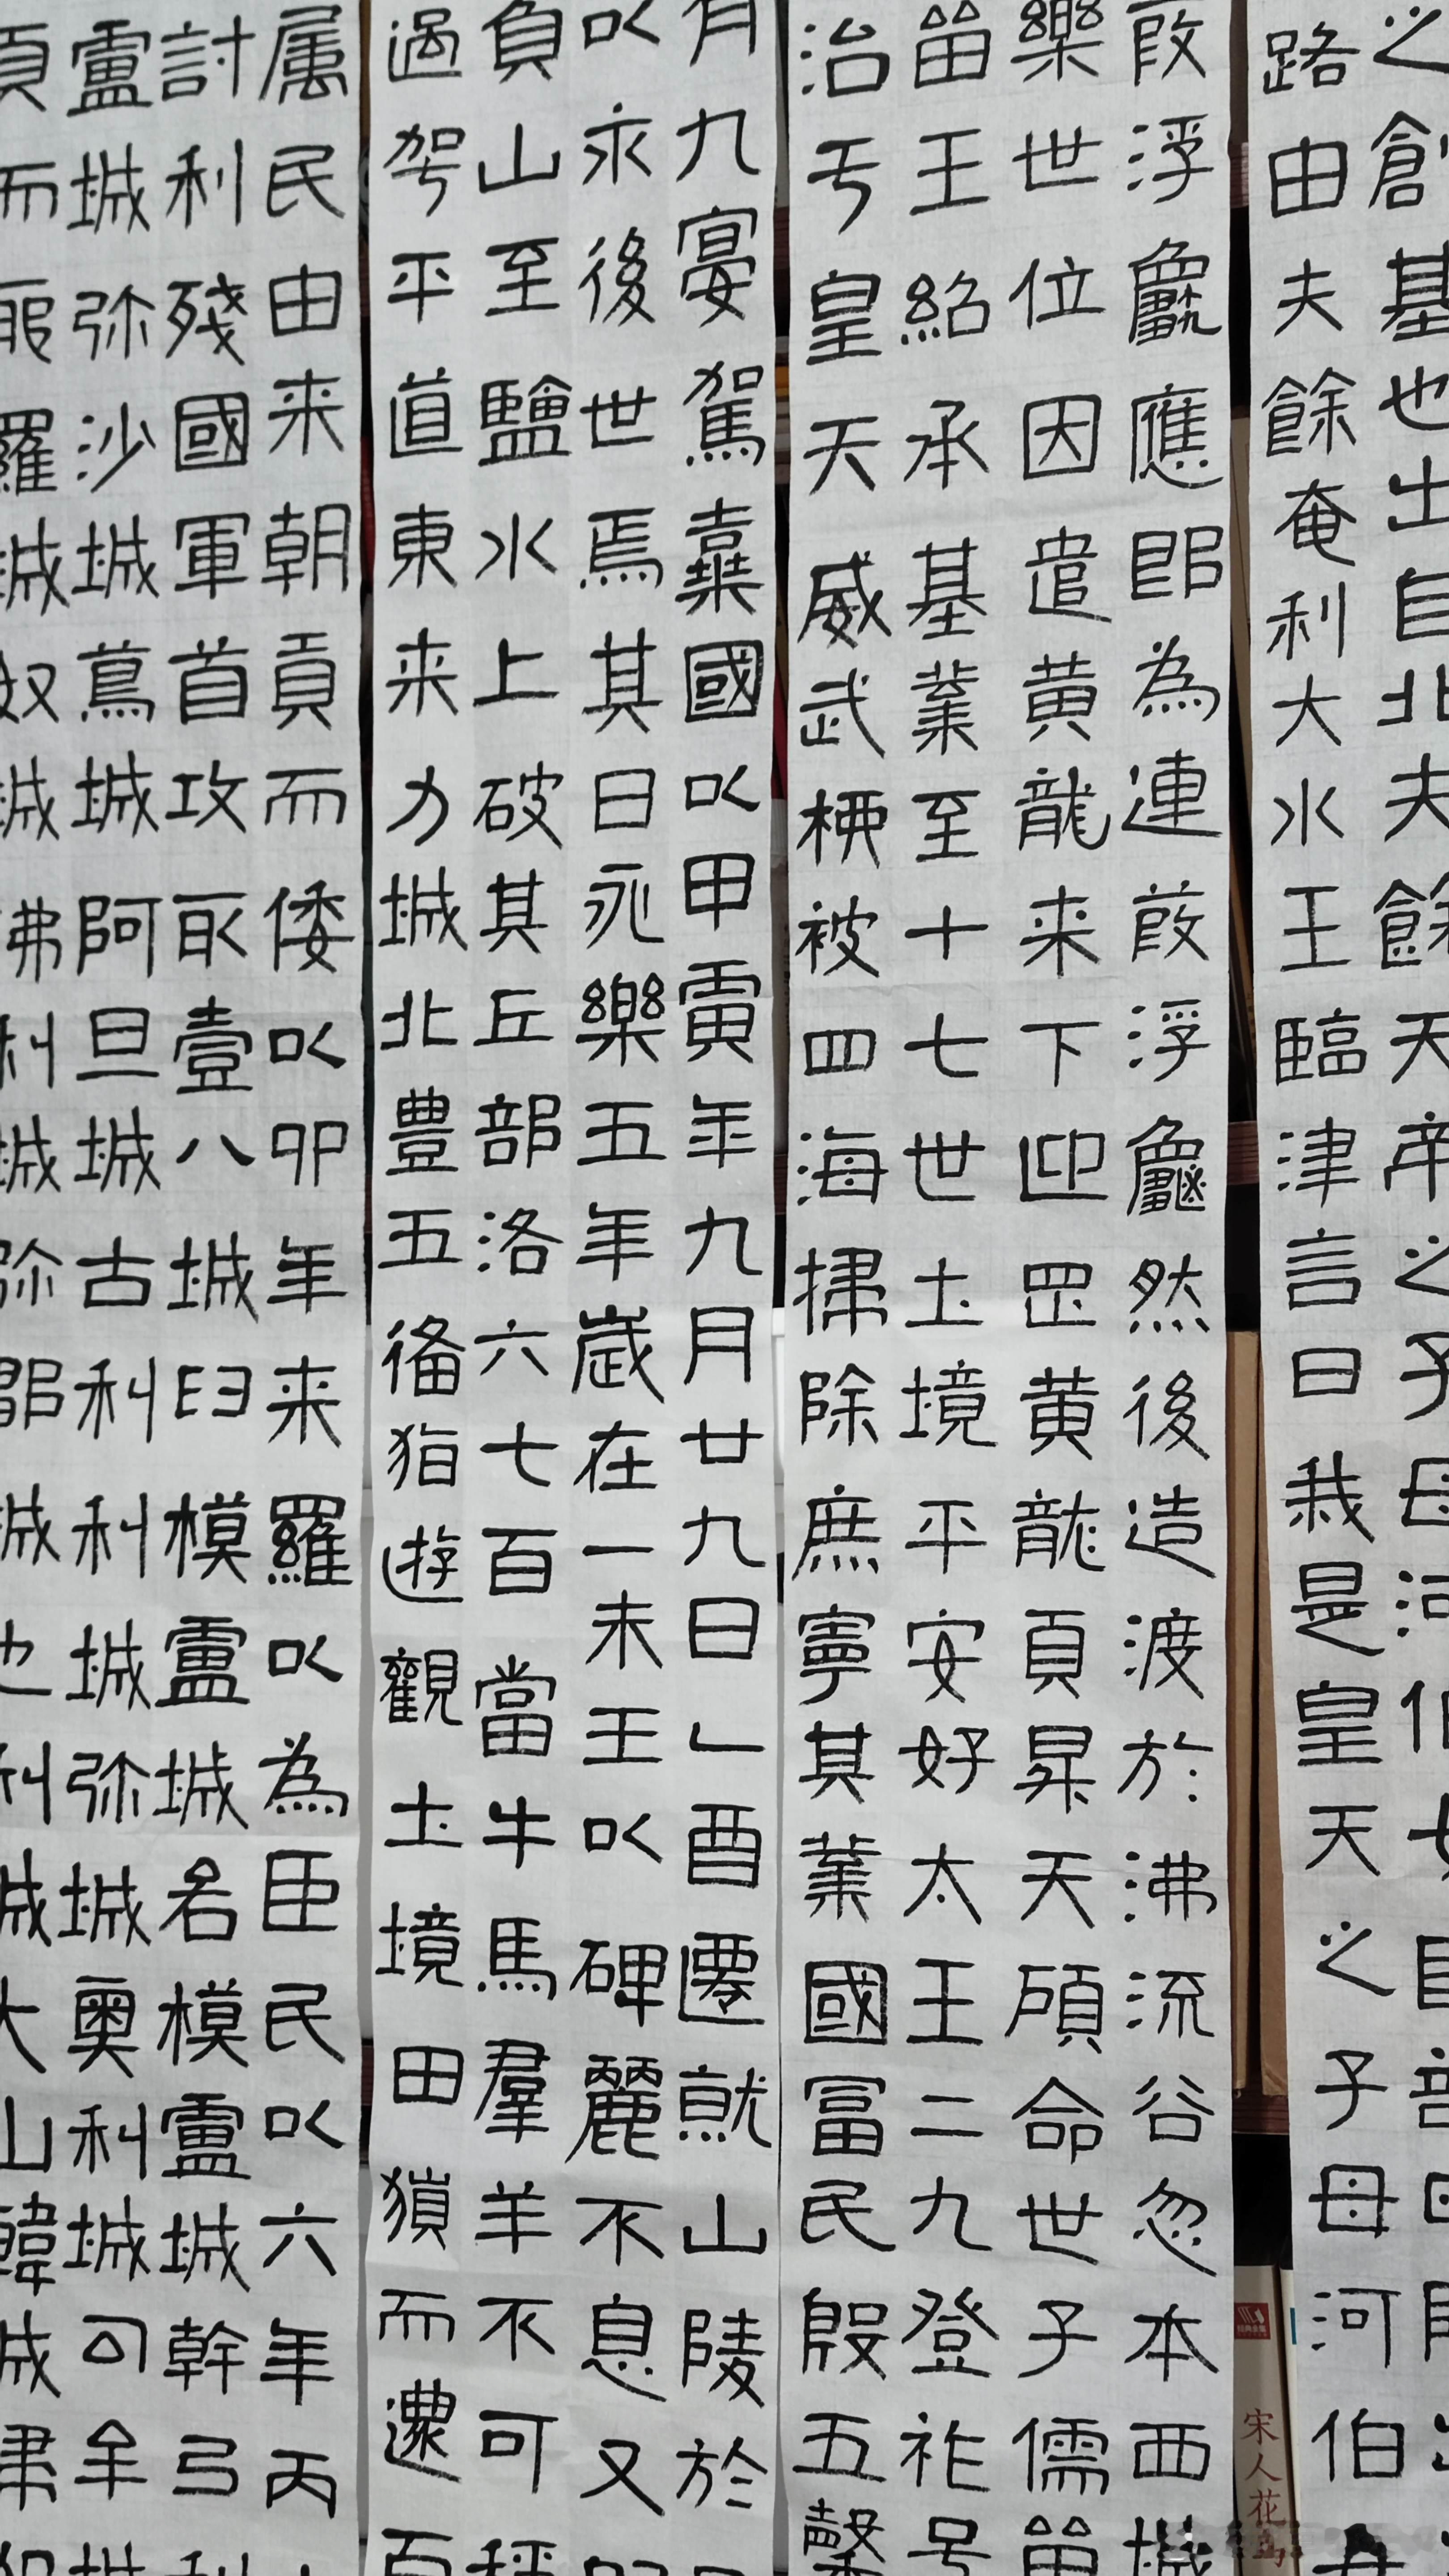 之創基也出自北夫餘天帝之子母河伯女
路由夫餘奄利大水王臨津言曰我是皇天之子母河伯
葭浮龜應即為連葭浮龜然後造渡於沸流谷忽本西城
樂世位因遣黃龍来下迎罡黃龍頁昇天顧命世子儒留
留王紹承基業至十七世土境平安好太王二九登祚号
治亐皇天威武柳被四海掃除庶寧其業國富民殷五
月九宴駕棄國以甲寅年九月廿九日乙酉遷就山陵於
以永後世焉其曰永樂五年歲在一未王以碑麗不息又
負山至鹽水上破其丘部洛六七百當牛馬羣羊不可稱
過駕平道東来力城北豊五猶遊觀土境田獵而還百
属民由来朝貢而倭以卯年来羅以為臣民以六年丙
討利殘國軍首攻取壹八城臼模盧城名模盧城幹弓利
盧城弥沙城蔦城阿旦城古利利城弥城奥利城勾牟城
頁而耶羅城奴城沸利城弥鄒城也利城大山韓城掃
宋人花鳥